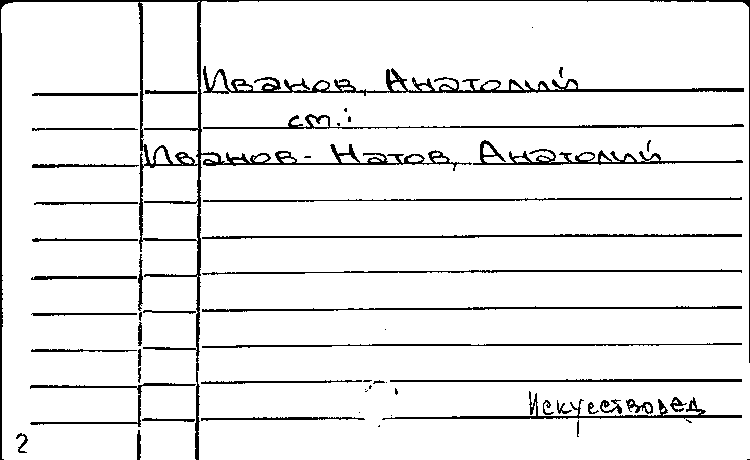 Иванов, Анатолий
см.:
Иванов-Натов, Анатолий
Искусствовед
2